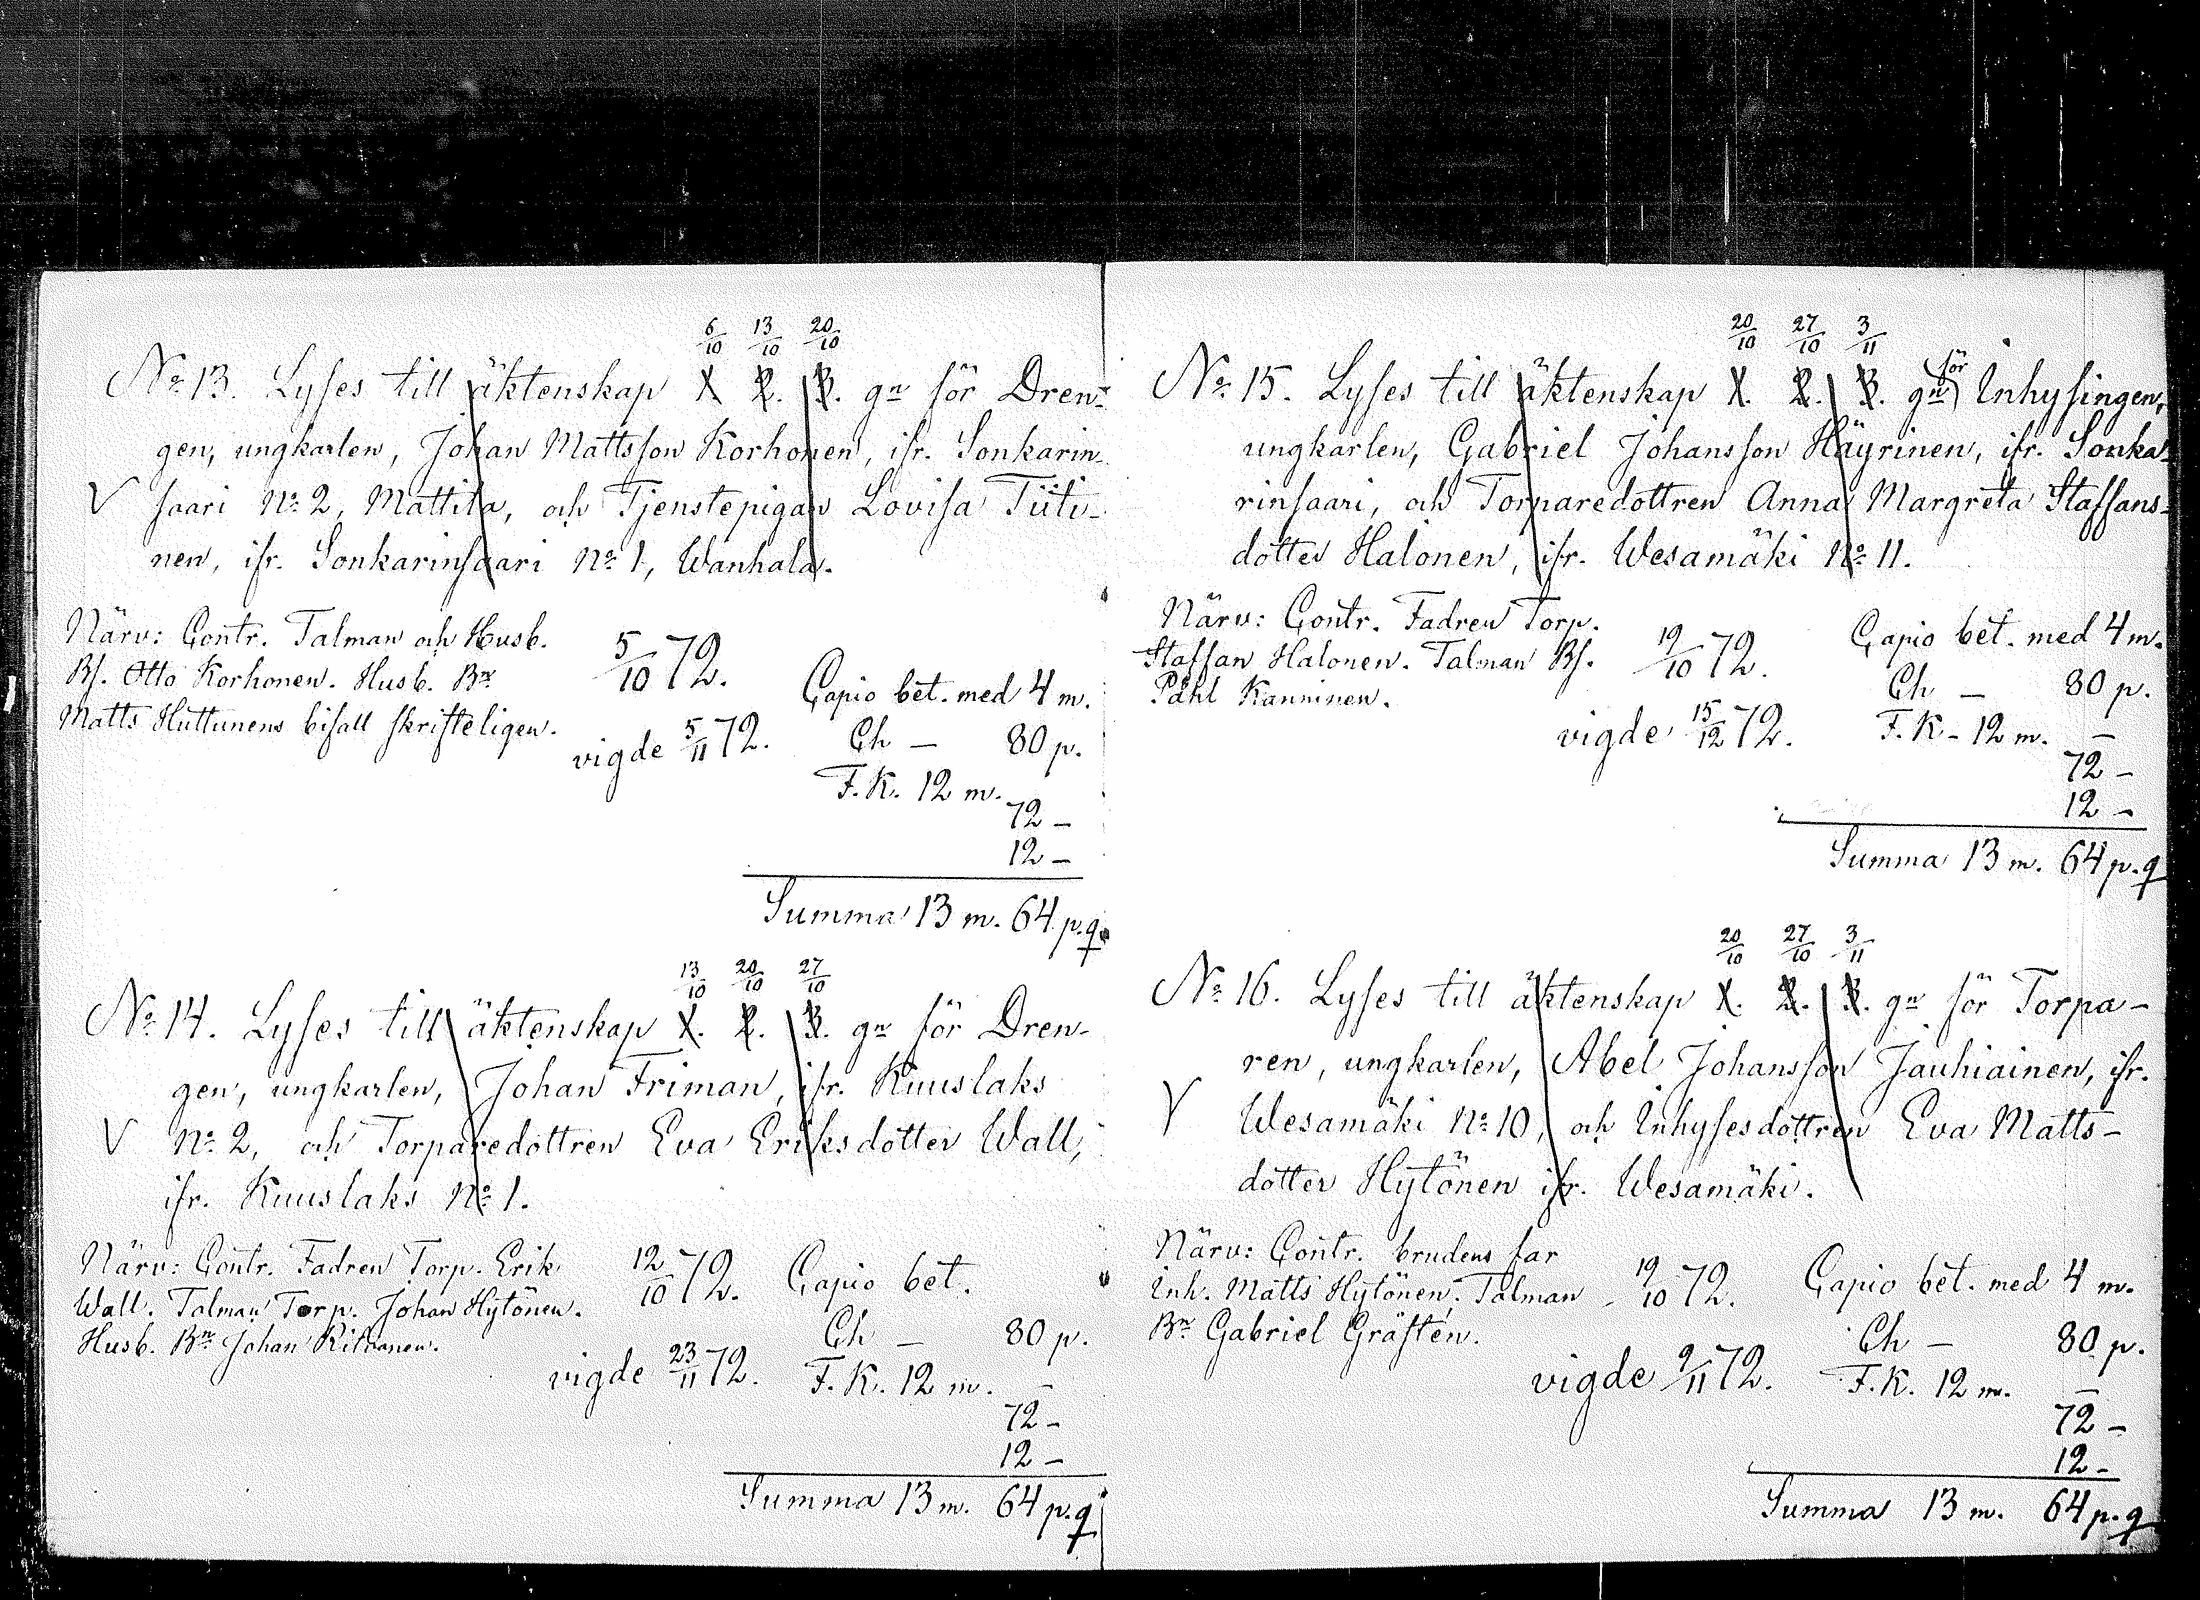 6/10 13/10 20/10
No 13. Lyses till äktenskap 1. 2. 3. gn för Dren-
gen, ungkarlen, Johan Mattsson Korhonen, ifr. Sonkarin-
V saari No 2, Mattila, och Tjenstepigan Lovisa Tiiti-
nen, ifr. Sonkarinsaari No 1, Wanhala.
Närv: Contr. Talman och Husb.
Bs. Otto Korhonen. Husb. Bn
Matts Huttunens bifall skrifteligen.
5/10 72.
vigde 5/11 72.
Capio bet. med 4 m.
Ch — 80 p.
F. K. 12 m.
72 —
12 —
Summa 13 m. 64 p.
13/10 20/10 27/10
No 14. Lyses till äktenskap 1. 2. 3. gn för Dren-
gen, ungkarlen, Johan Friman, ifr. Kuuslaks
V No 2, och Torparedottren Eva Eriksdotter Wall,
ifr. Kuuslaks No 1.
Närv: Contr. Fadren Torp. Erik
Wall. Talman Torp. Johan Hytönen.
Husb. Bn Johan
12/10 72.
vigde 23/11 72.
Capio bet.
Ch — 80 p.
F. K. 12 m. —
72 —
12 —
Summa 13 m. 64 p.
20/10 27/10 3/11
No 15. Lyses till äktenskap 1. 2. 3. gn för Inhysingen,
ungkarlen, Gabriel Johansson Häyrinen, ifr. Sonka-
rinsaari, och Torparedottren Anna Margreta Staffans-
dotter Halonen, ifr. Wesamäki No 11.
Närv: Contr. Fadren Torp.
Staffan Halonen. Talman Bs.
Påhl Kanninen.
19/10 72.
vigde 15/12 72.
Capio bet. med 4 m.
Ch — 80 p.
F. K — 12 m. —
72 —
12 —
Summa 13 m. 64 p.
20/10 27/10 3/11
No 16. Lyses till äktenskap 1. 2. 3. gn för Torpa-
ren, ungkarlen, Abel Johansson Jauhiainen, ifr.
V Wesamäki No 10, och Inhysesdottren Eva Matts-
dotter Hytönen ifr. Wesamäki.
Närv: Contr. brudens far
Inh. Matts Hytönen. Talman
Bn Gabriel Gråsten.
19/10 72.
vigde 9/11 72.
Capio bet. med 4 m.
Ch — 80 p.
F. K. 12 m. —
72 —
12 —
Summa 13 m. 64 p.